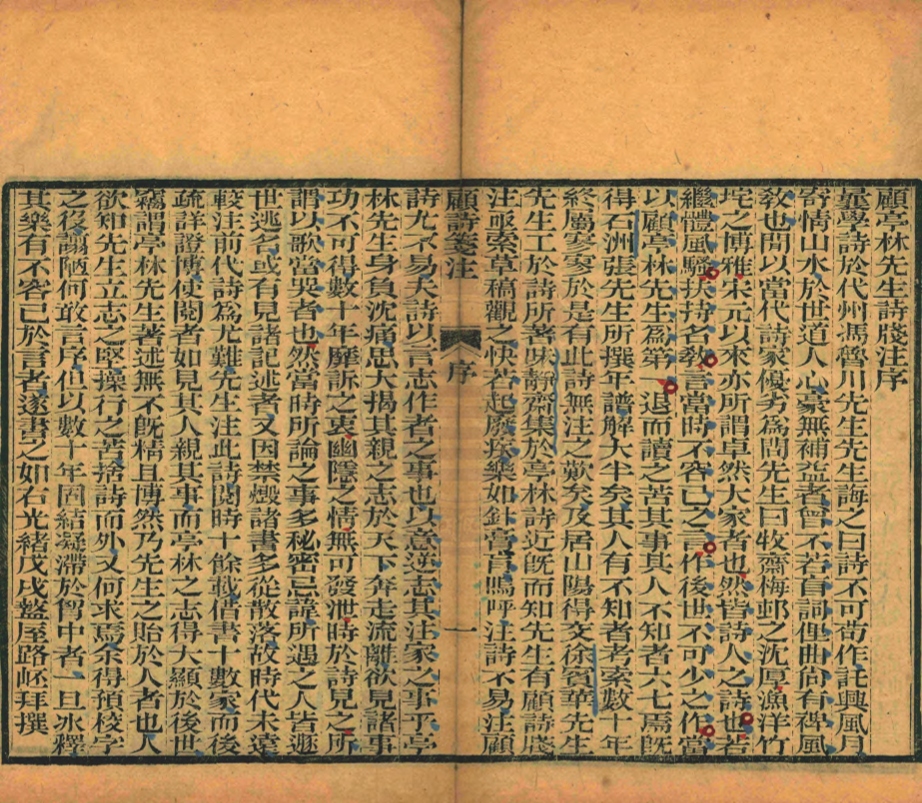 顧亭林先生詩牋注序
岏學詩於代州馮魯川先生先生誨之曰詩不可苟作託興風月
寄情山水於世道人心毫無補益者曾不若盲詞俚曲尚有裨風
敎也間以當代詩家優劣爲問先生曰牧齋梅邨之沈厚漁洋竹
垞之博雅宋元以來亦所謂卓然大家者也然皆詩人之詩也若
繼體風騷扶持名敎言當時不容已之言作後世不可少之作當
以顧亭林先生爲第一退而讀之苦其事其人不知者六七焉旣
得石洲張先生所撰年譜解大半矣其人有不知者考索數十年
終屬寥寥於是有此詩無注之歎矣及居山陽得交徐賓華先生
先生工於詩所著味靜齋集於亭林詩近旣而知先生有顧詩牋
注亟索草稿觀之快若起廢疾樂如針膏肓嗚呼注詩不易注顧
顧詩箋注 序 一
詩尤不易夫詩以言志作者之事也以意逆志其注家之事乎亭
林先生身負沈痛思大揭其親之志於天下奔走流離欲見諸事
功不可得數十年靡訴之衷幽隱之情無可發泄時於詩見之所
謂以歌當哭者也然當時所論之事多秘密忌諱所遇之人皆遯
世逃名或有見諸記述者又因禁燬諸書多從散落故時代未遠
較注前代詩爲尤難先生注此詩閱時十餘載借書十數家而後
疏詳證博使閱者如見其人親其事而亭林之志得大顯於後世
竊謂亭林先生著述無不旣精且博然乃先生之貽於人者也人
欲知先生立志之堅操行之苦捨詩而外又何求焉余得預校字
之役譾陋何敢言序但以數十年固結凝滯於智中者一旦冰釋
其樂有不容已於言者遂書之如右光緒戊戌盩厔路岯拜撰